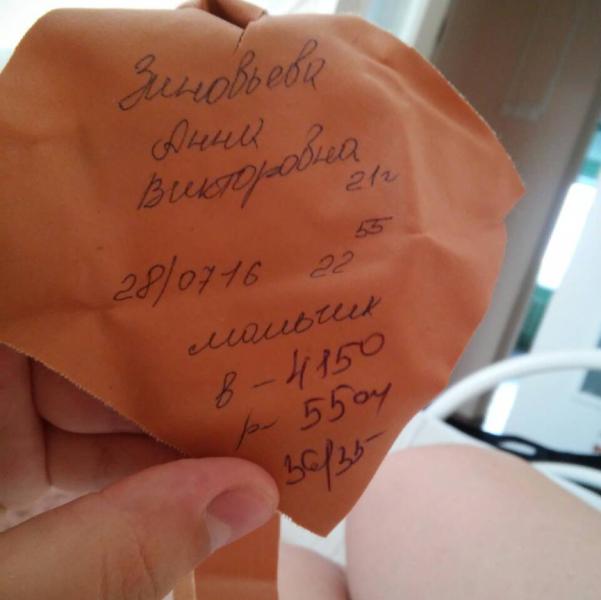 Зиновьева
Анна
Викторовна
21г
28/07 16 22 55
мальчик
в - 4150
р - 55 см
36/35